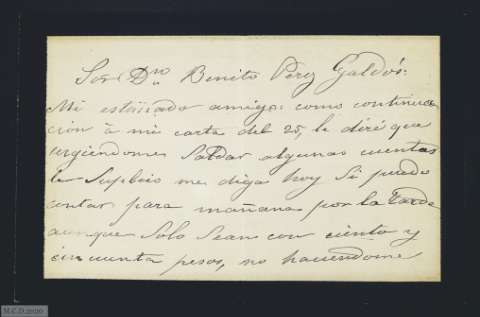 Sor Dn Benito Perez Galdós:
Mi estimado amigo: como continua-
ción à mi carta del 25, le diré que
urgiendome Saldar algunas cuentas
le Suplico me diga hoy Si puedo
contar para mañana por la tarde
aunque Solo Sean con ciento y
cincuenta pesos, no haciendome
M.C.D.2020